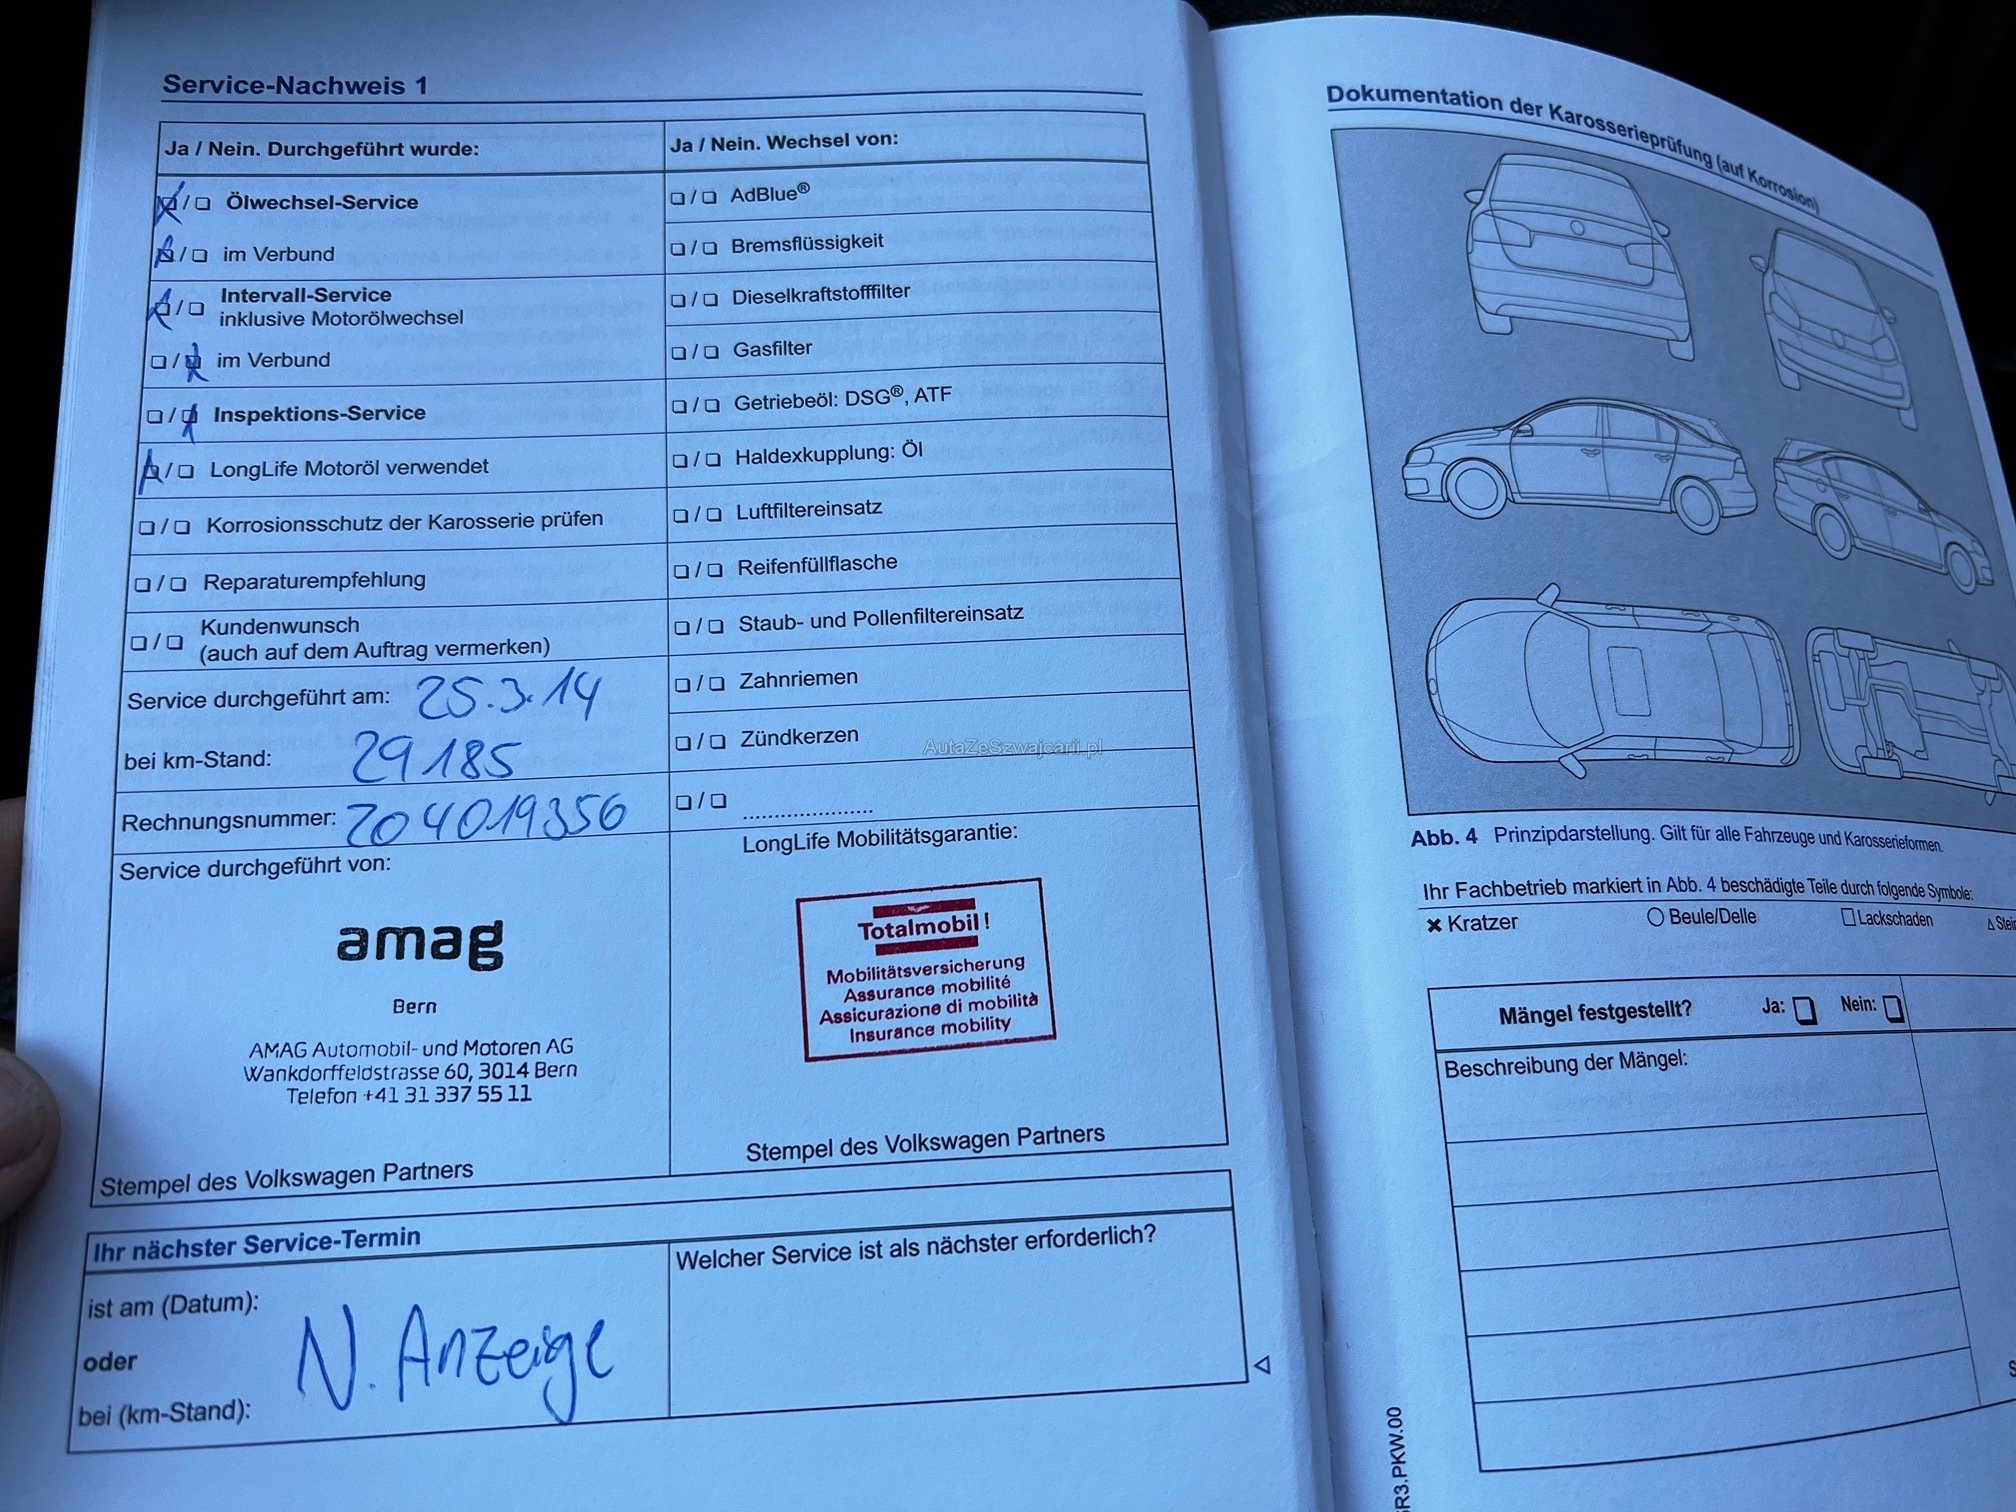 Service-Nachweis 1
Ja / Nein. Durchgeführt wurde:
Ölwechsel-Service
im Verbund
Intervall-Service
inklusive Motorölwechsel
im Verbund
Inspektions-Service
LongLife Motoröl verwendet
Korrosionsschutz der Karosserie prüfen
Reparaturempfehlung
Kundenwunsch
(auch auf dem Auftrag vermerken)
Service durchgeführt am: 25.3.14
bei km-Stand: 29185
Rechnungsnummer: 204019356
Service durchgeführt von:
amag
Bern
AMAG Automobil- und Motoren AG
Wankdorffeldstrasse 60, 3014 Bern
Telefon +41 31 337 55 11
Stempel des Volkswagen Partners
Ja / Nein. Wechsel von:
AdBlue®
Bremsflüssigkeit
Dieselkraftstofffilter
Gasfilter
Getriebeöl: DSG®, ATF
Haldexkupplung: Öl
Luftfiltereinsatz
Reifenfüllflasche
Staub- und Pollenfiltereinsatz
Zahnriemen
Zündkerzen
AutaZeSzwajcarii.pl
LongLife Mobilitätsgarantie:
Totalmobil!
Mobilitätsversicherung
Assurance mobilité
Assicurazione di mobilità
Insurance mobility
Stempel des Volkswagen Partners
Ihr nächster Service-Termin
ist am (Datum):
oder
bei (km-Stand):
N. Anzeige
Welcher Service ist als nächster erforderlich?
Dokumentation der Karosserieprüfung (auf Korrosion)
Abb. 4 Prinzipdarstellung. Gilt für alle Fahrzeuge und Karosserieformen.
Ihr Fachbetrieb markiert in Abb. 4 beschädigte Teile durch folgende Symbole:
Kratzer
Beule/Delle
Lackschaden
Mängel festgestellt? Ja: Nein:
Beschreibung der Mängel:
R3.PKW.00